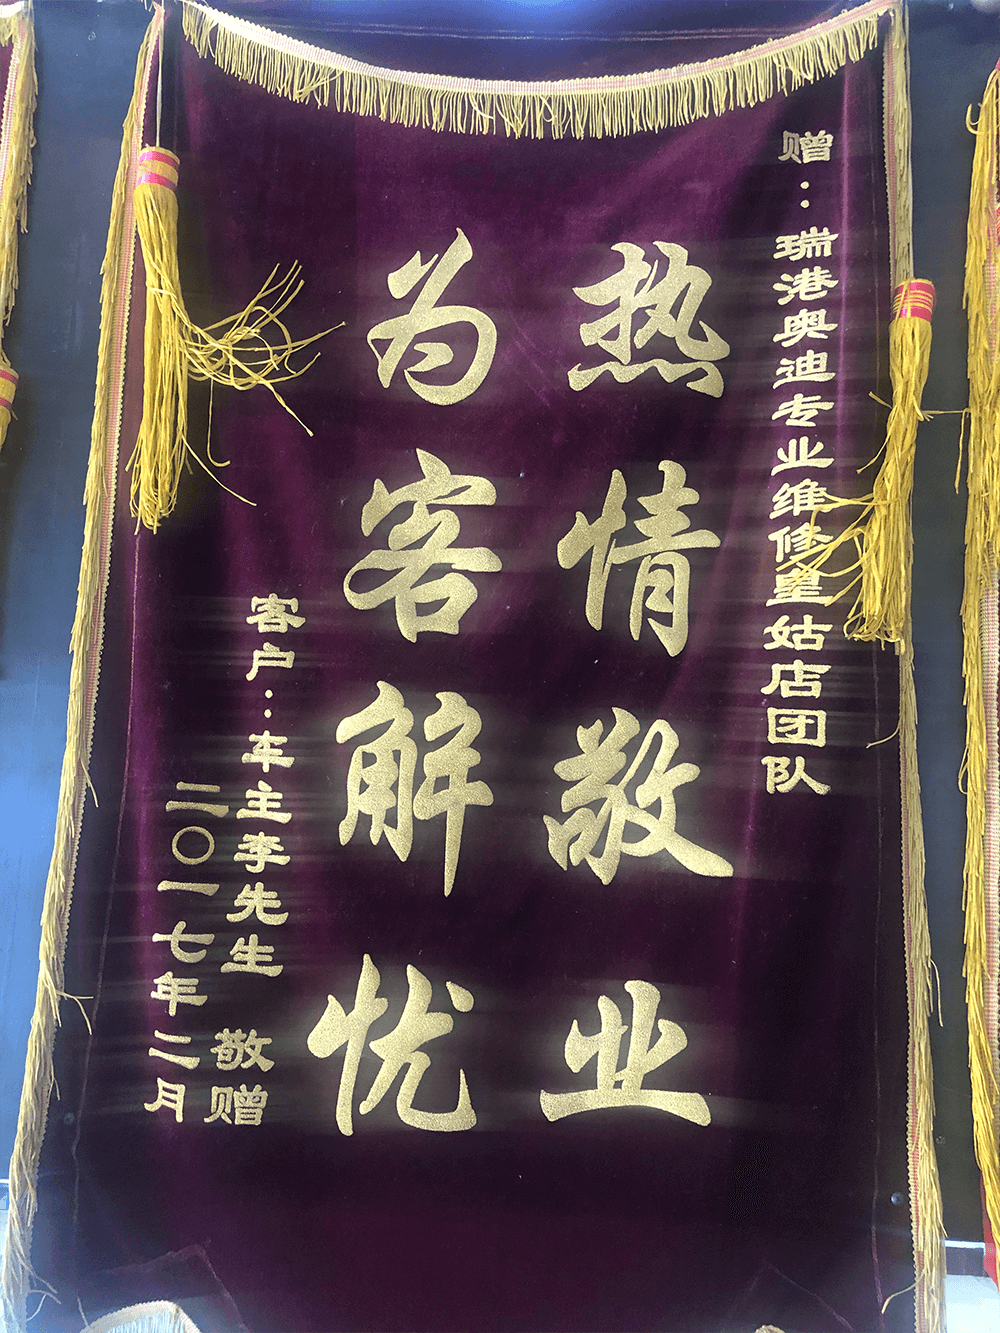 赠：瑞港奥迪专业维修皇姑店团队
热情敬业
为客解忧
客户：车主李先生 敬赠
二〇一七年二月